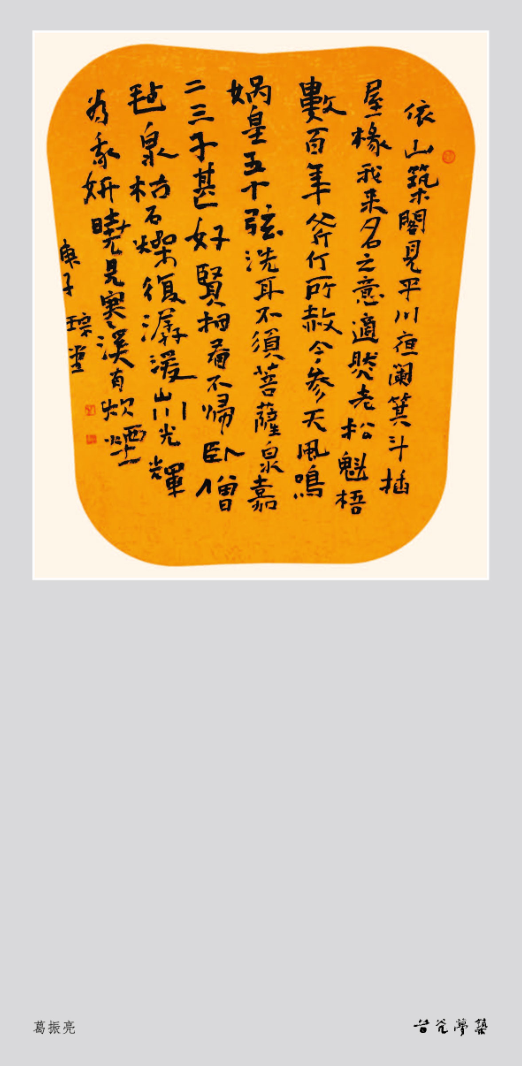 依山築閣見平川夜闌箕斗插
屋椽我来名之意適然老松魁梧
數百年斧斤所赦今參天風鳴
媧皇五十弦洗耳不須菩薩泉嘉
二三子甚好賢相看不歸卧僧
毡泉枯石燥復潺湲山川光輝
為我妍曉見寒溪有炊煙
庚子 琮堂
葛振亮
夢築